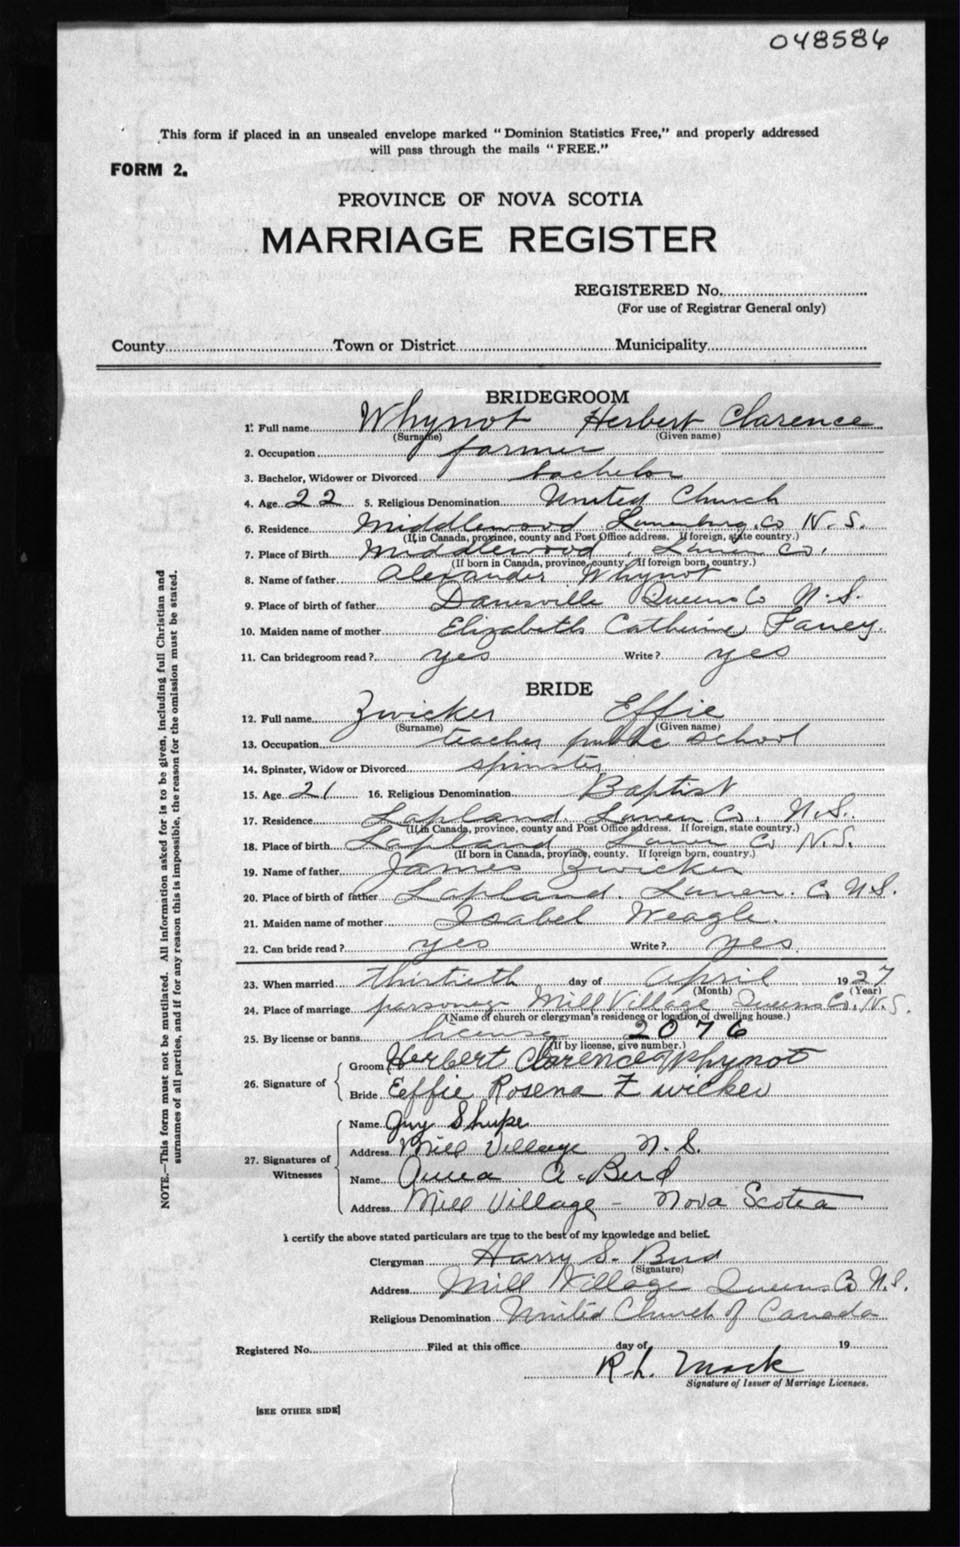 048586
This form if placed in an unsealed envelope marked " Dominion Statistics Free," and properly addressed
will pass through the mails " FREE."
FORM 2.
PROVINCE OF NOVA SCOTIA
MARRIAGE REGISTER
REGISTERED No.
(For use of Registrar General only)
County Town or District Municipality
BRIDEGROOM
1. Full name Whynot Herbert Clarence
(Surname) (Given name)
2. Occupation farmer
3. Bachelor, Widower or Divorced bachelor
4. Age 22 5. Religious Denomination United Church
6. Residence Middlewood Lunenburg Co N.S.
(If in Canada, province, county and Post Office address. If foreign, state country.)
7. Place of Birth Middlewood, Lunen Co.
(If born in Canada, province, county. If foreign born, country.)
8. Name of father Alexander Whynot
9. Place of birth of father Danesville Queens Co N.S.
10. Maiden name of mother Elizabeth Catherine Faney.
11. Can bridegroom read? yes Write? yes
BRIDE
12. Full name Zwicker Effie
(Surname) (Given name)
13. Occupation teacher public school
14. Spinster, Widow or Divorced spinster
15. Age 21 16. Religious Denomination Baptist
17. Residence Lapland. Lunen Co. N.S.
(If in Canada, province, county and Post Office address. If foreign, state country.)
18. Place of birth Lapland Lunen Co N.S.
(If born in Canada, province, county. If foreign born, country.)
19. Name of father James Zwicker
20. Place of birth of father Lapland. Lunen. Co N.S.
21. Maiden name of mother Isabel Weagle.
22. Can bride read? yes Write? yes
23. When married thirtieth day of April 1927
(Month) (Year)
24. Place of marriage parsonage Mill Village Queens Co. N.S.
(Name of church or clergyman's residence or location of dwelling house.)
25. By license or banns license 2076
(If by license, give number.)
26. Signature of
Groom Herbert Clarence Whynot
Bride Eeffie Rosena Zwicker
27. Signatures of Witnesses
Name Guy Shupe
Address Mill Village N.S.
Name Anna A. Bird
Address Mill Village - Nova Scotia
I certify the above stated particulars are true to the best of my knowledge and belief.
Clergyman Harry S. Bird
(Signature)
Address Mill Village Queens Co N.S.
Religious Denomination United Church of Canada
Registered No. Filed at this office day of 19
R. L. Mack
Signature of Issuer of Marriage Licenses.
[SEE OTHER SIDE]
NOTE.—This form must not be mutilated. All information asked for is to be given, including full Christian and
surnames of all parties, and if for any reason this is impossible, the reason for the omission must be stated.